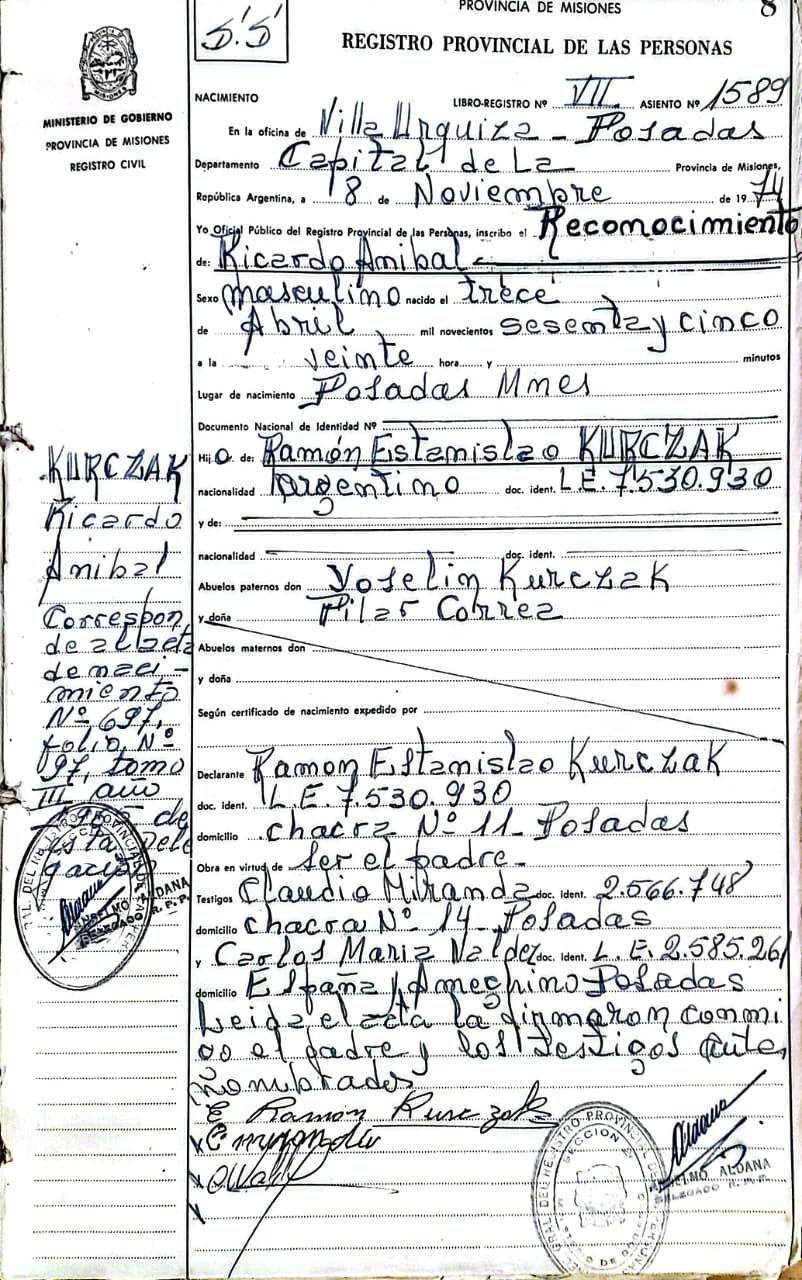 PROVINCIA DE MISIONES
8
S.S
REGISTRO PROVINCIAL DE LAS PERSONAS
MINISTERIO DE GOBIERNO
PROVINCIA DE MISIONES
REGISTRO CIVIL
NACIMIENTO
LIBRO-REGISTRO Nº VII ASIENTO Nº 1589
En la oficina de Villa Urquiza - Posadas
Departamento Capital de La Provincia de Misiones,
República Argentina, a 8 de Noviembre de 1974
Yo Oficial Público del Registro Provincial de las Personas, inscribo el Reconocimiento
de: Ricardo Anibal
Sexo masculino nacido el trece
de Abril mil novecientos sesenta y cinco
a la veinte hora y minutos
Lugar de nacimiento Posadas Mnes
Documento Nacional de Identidad Nº
Hijo de: Ramón Estanislao KURCZAK
nacionalidad Argentino doc. ident. L.E. 7.530.930
y de:
nacionalidad doc. ident.
Abuelos paternos don Yoselin Kurczak
y doña Pilar Correa
Abuelos maternos don
y doña
Según certificado de nacimiento expedido por
Declarante Ramon Estanislao Kurczak
doc. ident. L.E. 7.530.930
domicilio chacra Nº 11 - Posadas
Obra en virtud de ser el padre -
Testigos Claudio Miranda doc. ident. 2.566.748
domicilio chacra Nº 14 - Posadas
y Carlos Maria Valdez doc. ident. L.E. 2.585.261
domicilio España y Ameghino Posadas
Leida el acta la firmaron conmi
go el padre y los testigos ante,
nombrados
Ramón Kurczak
KURCZAK
Ricardo
Anibal
Correspon
de al acta
de naci-
miento
Nº 697,
folio Nº
97, tomo
III año
de
esta Dele
gación
ANSELMO ALDANA
DELEGADO R. P. P.
ANSELMO ALDANA
DELEGADO R. P. P.